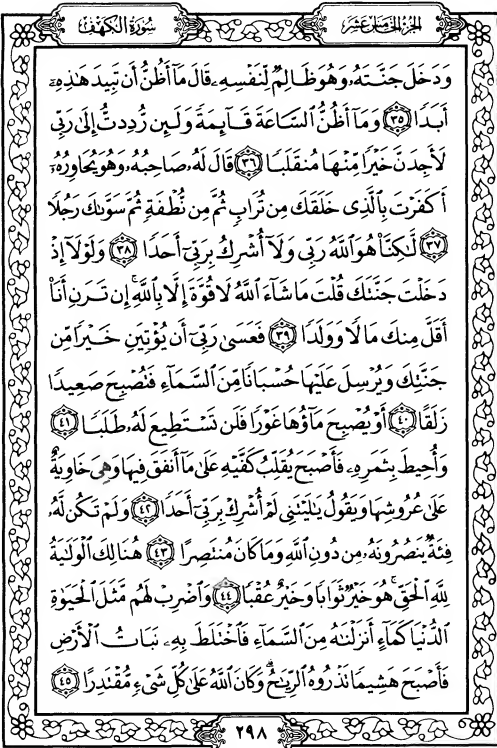 سُورَةُ الكَهْفِ الجُزْءُ الخَامِسَ عَشَرَ
وَدَخَلَ جَنَّتَهُۥ وَهُوَ ظَالِمٌ لِّنَفْسِهِۦ قَالَ مَآ أَظُنُّ أَن تَبِيدَ هَٰذِهِۦٓ
أَبَدًا ٣٥ وَمَآ أَظُنُّ ٱلسَّاعَةَ قَآئِمَةً وَلَئِن رُّدِدتُّ إِلَىٰ رَبِّى
لَأَجِدَنَّ خَيْرًا مِّنْهَا مُنقَلَبًا ٣٦ قَالَ لَهُۥ صَاحِبُهُۥ وَهُوَ يُحَاوِرُهُۥٓ
أَكَفَرْتَ بِٱلَّذِى خَلَقَكَ مِن تُرَابٍ ثُمَّ مِن نُّطْفَةٍ ثُمَّ سَوَّىٰكَ رَجُلًا
٣٧ لَّٰكِنَّا۠ هُوَ ٱللَّهُ رَبِّى وَلَآ أُشْرِكُ بِرَبِّىٓ أَحَدًا ٣٨ وَلَوْلَآ إِذْ
دَخَلْتَ جَنَّتَكَ قُلْتَ مَا شَآءَ ٱللَّهُ لَا قُوَّةَ إِلَّا بِٱللَّهِ ۚ إِن تَرَنِ أَنَا۠
أَقَلَّ مِنكَ مَالًا وَوَلَدًا ٣٩ فَعَسَىٰ رَبِّىٓ أَن يُؤْتِيَنِ خَيْرًا مِّن
جَنَّتِكَ وَيُرْسِلَ عَلَيْهَا حُسْبَانًا مِّنَ ٱلسَّمَآءِ فَتُصْبِحَ صَعِيدًا
زَلَقًا ٤٠ أَوْ يُصْبِحَ مَآؤُهَا غَوْرًا فَلَن تَسْتَطِيعَ لَهُۥ طَلَبًا ٤١
وَأُحِيطَ بِثَمَرِهِۦ فَأَصْبَحَ يُقَلِّبُ كَفَّيْهِ عَلَىٰ مَآ أَنفَقَ فِيهَا وَهِىَ خَاوِيَةٌ
عَلَىٰ عُرُوشِهَا وَيَقُولُ يَٰلَيْتَنِى لَمْ أُشْرِكْ بِرَبِّىٓ أَحَدًا ٤٢ وَلَمْ تَكُن لَّهُۥ
فِئَةٌ يَنصُرُونَهُۥ مِن دُونِ ٱللَّهِ وَمَا كَانَ مُنتَصِرًا ٤٣ هُنَالِكَ ٱلْوَلَٰيَةُ
لِلَّهِ ٱلْحَقِّ ۚ هُوَ خَيْرٌ ثَوَابًا وَخَيْرٌ عُقْبًا ٤٤ وَٱضْرِبْ لَهُم مَّثَلَ ٱلْحَيَوٰةِ
ٱلدُّنْيَا كَمَآءٍ أَنزَلْنَٰهُ مِنَ ٱلسَّمَآءِ فَٱخْتَلَطَ بِهِۦ نَبَاتُ ٱلْأَرْضِ
فَأَصْبَحَ هَشِيمًا تَذْرُوهُ ٱلرِّيَٰحُ ۗ وَكَانَ ٱللَّهُ عَلَىٰ كُلِّ شَىْءٍ مُّقْتَدِرًا ٤٥
٢٩٨